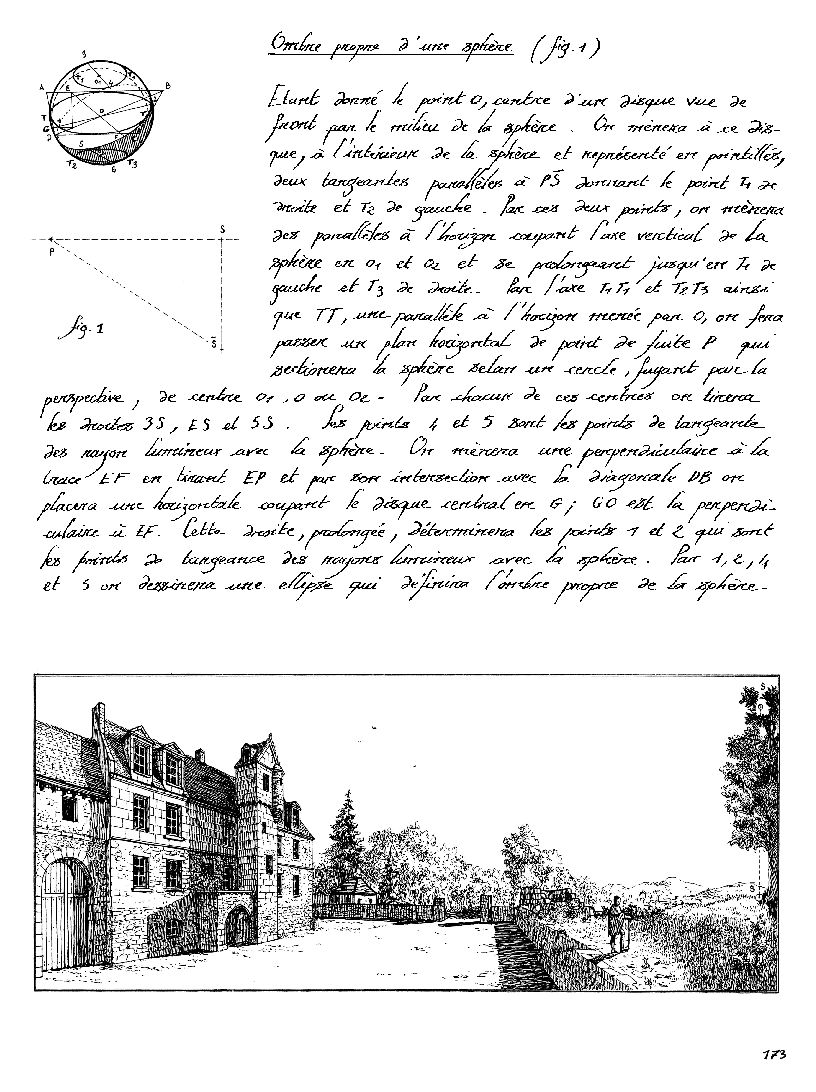 Ombre propre d'une sphère (fig. 1)
Etant donné le point O, centre d'un disque vue de
front par le milieu de la sphère. On mènera à ce dis-
que, à l'intérieur de la sphère et représenté en pointillés,
deux tangeantes parallèles à PS̄ donnant le point T1 de
droite et T2 de gauche. Par ces deux points, on mènera
des parallèles à l'horizon coupant l'axe vertical de la
sphère en O1 et O2 et se prolongeant jusqu'en T1 de
gauche et T3 de droite. Par l'axe T1T1 et T2T3 ainsi
que TT, une parallèle à l'horizon menée par O, on fera
passer un plan horizontal de point de fuite P qui
sectionnera la sphère selon un cercle, fuyant par la
perspective, de centre O1, O ou O2. Par chacun de ces centres on tirera
les droites 3S, ES et 5S. Les points 4 et 5 sont les points de tangeante
des rayon lumineux avec la sphère. On mènera une perpendiculaire à la
trace EF en tirant EP et par son intersection avec la diagonale DB on
placera une horizontale coupant le disque central en G; GO est la perpendi-
culaire à EF. Cette droite, prolongée, déterminera les points 1 et 2 qui sont
les points de tangeance des rayons lumineux avec la sphère. Par 1, 2, 4
et 5 on dessinera une ellipse qui définira l'ombre propre de la sphère.
3
A
E
B
O
T
G
D
F
5
T2
T3
6
S
P
S̄
fig. 1
S
S̄
173